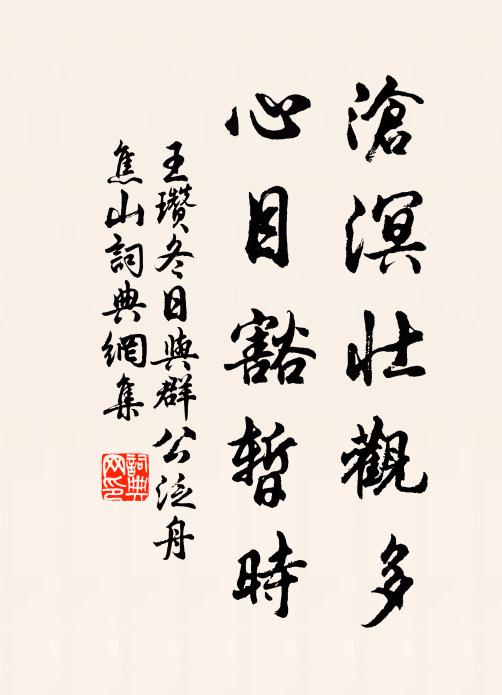 滄溟壯觀多
心目豁暫時
王瓚冬日與群公泛舟
焦山詞典網集
詞典网印